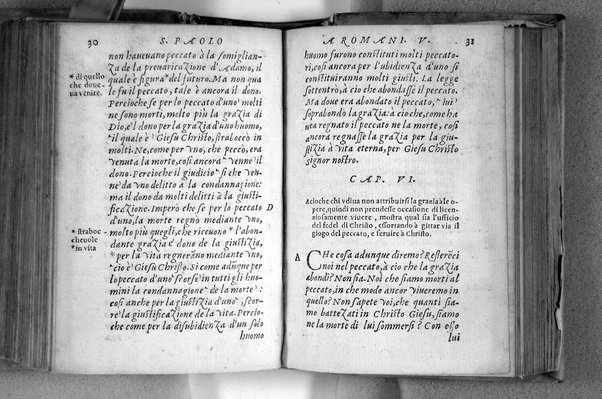 30 S. PAOLO
non haveuano peccato à la somiglian-
za de la prevaricazione d'Adamo, il
* di quello quale è figura* del futuro. Ma non qua
che doue-
ua venire. le fu il peccato, tale è ancora il dono.
Percioche se per lo peccato d'uno* molti
ne sono morti, molto più la grazia di
Dio, e'l dono per la grazia d'uno huomo,
* il quale è* Giesu Christo, straboccò in
molti. Ne, come per uno, che peccò, era
venuta la morte, così ancora* venne il
dono. Percioche il giudicio* si che ven-
ne* da vno delitto a la condannazione:
ma il dono da molti delitti à la giusti-
ficazione. Imperò che se per lo peccato D
d'uno, la morte regnò mediante vno,
* straboc- molto più quegli, che riceuono* l'abon-
cheuole dante grazia e'l dono de la giustizia,
* in vita * per la vita regneranno mediante vno,
* cio è* Giesu Christo. Si come adunque per
lo peccato d'uno* si scorse* in tutti gli huo
mini la condannagione* de la morte*:
cosi anche per la giustizia d'uno* si scor-
se la giustificazione de la vita. Percio-
che come per la disubidienza d'un solo
huomo
A ROMANI. V. 31
huomo furono constituti molti peccato-
ri, così ancora per l'ubidienza d'uno si
constituiranno molti giusti. La legge
sottentrò, à cio che abondasse il peccato.
Ma doue era abondato il peccato, * lui*
soprabondò la grazia: à cio che, come ha-
uea regnato il peccato ne la morte, così
ancora regnasse la grazia per la giu-
stizia à vita eterna, per Giesu Christo
signor nostro.
CAP. VI.
Acioche chi vdiua non attribuirsi la grazia à le o-
pere, quindi non prendesse occasione di licen-
ziosamente viuere, mostra qual sia l'ufficio
del fedel di Christo, essortando à gittar via il
giogo del peccato, e seruire à Christo.
A CHe cosa adunque diremo? Resteréci
noi nel peccato, à cio che la grazia
abondi? Non sia. Noi che siamo morti al
peccato, in che modo ancor viueremo in
quello? Non sapete voi, che quanti sia-
mo battezati in Christo Giesu, siamo
ne la morte di lui sommersi? Con esso
lui